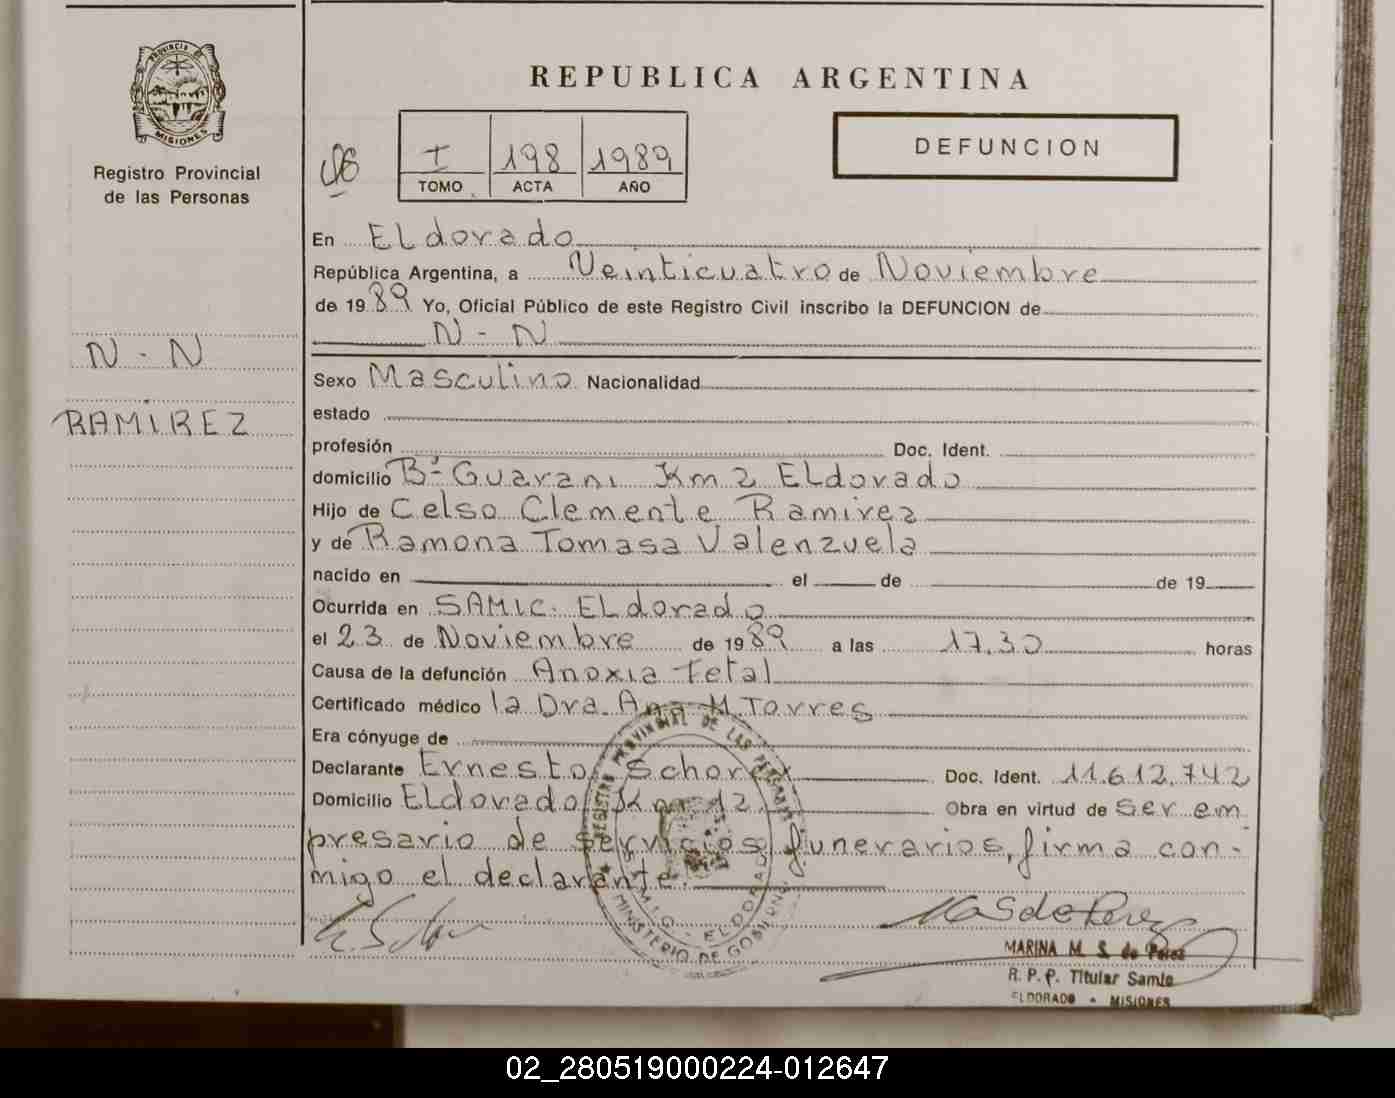 PROVINCIA DE
MISIONES
Registro Provincial
de las Personas
N - N
RAMIREZ
REPUBLICA ARGENTINA
I 198 1989
TOMO ACTA AÑO
DEFUNCION
En Eldorado
República Argentina, a Veinticuatro de Noviembre
de 1989 Yo, Oficial Público de este Registro Civil inscribo la DEFUNCION de
N - N
Sexo Masculino Nacionalidad
estado
profesión Doc. Ident.
domicilio Bº Guarani Km 2 Eldorado
Hijo de Celso Clemente Ramirez
y de Ramona Tomasa Valenzuela
nacido en el de de 19
Ocurrida en SAMIC. Eldorado
el 23 de Noviembre de 1989 a las 17.30 horas
Causa de la defunción Anoxia Fetal
Certificado médico la Dra. Ana M. Torres
Era cónyuge de
Declarante Ernesto Doc. Ident. 11.612.742
Domicilio Eldorado Km 12 Obra en virtud de ser em
presario de servicios funerarios, firma con-
migo el declarante.
REGISTRO PROVINCIAL DE LAS PERSONAS
MINISTERIO DE GOBIERNO
ELDORADO
MARINA M. S. de Perez
R. P. P. Titular Samic
ELDORADO - MISIONES
02_280519000224-012647